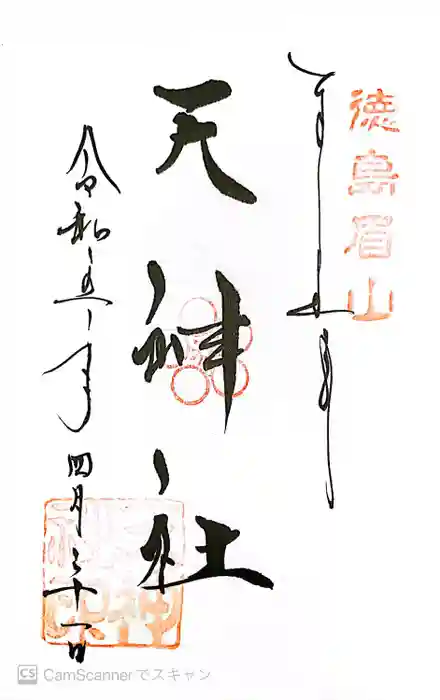 徳島眉山
奉拝
天神社
令和五年
四月三十日
CS CamScannerでスキャン